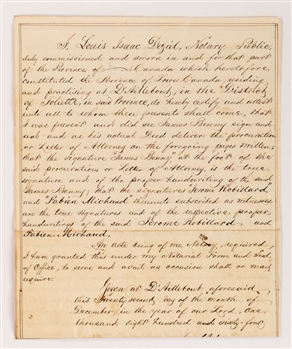 I, Louis Isaac Deziel, Notary Public,
duly commissioned and sworn in and for that part
of the Province of Canada which heretofore
constituted the Province of Lower Canada, residing
and practising at D'Ailleboût, in the District
of Joliette, in said Province, do hereby certify and attest
unto all to whom these presents shall come, that
I was present and did see James Bonny sign and
seal and as his actual Deed deliver the procuration
or Letter of Attorney on the foregoing pages written,
that the signature "James Bonny" at the foot of the
said procuration or Letter of Attorney, is the true
signature and of the proper handwriting of the said
James Bonny; that the signatures "Jérome Robillard"
and "Fabien Michaud" thereunto subscribed as witnesses
are the true signatures and of the respective proper
handwriting of the said Jérome Robillard and
Fabien Michaud.
An Act being of me, Notary, required,
I have granted this under my Notarial Form and Seal
of Office, to serve and avail as occasion shall or may
require.
Given at D'Ailleboût aforesaid
this Twenty second day of the month of
December, in the year of our Lord, One
thousand eight hundred and sixty-four.